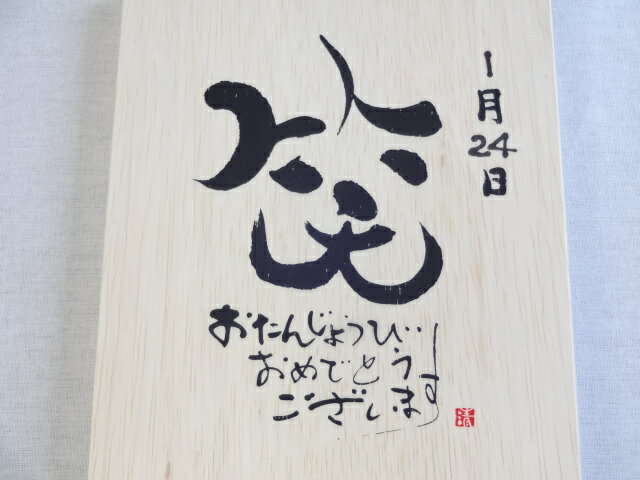 1月24日
笑
おたんじょうび
おめでとう
ございます
清